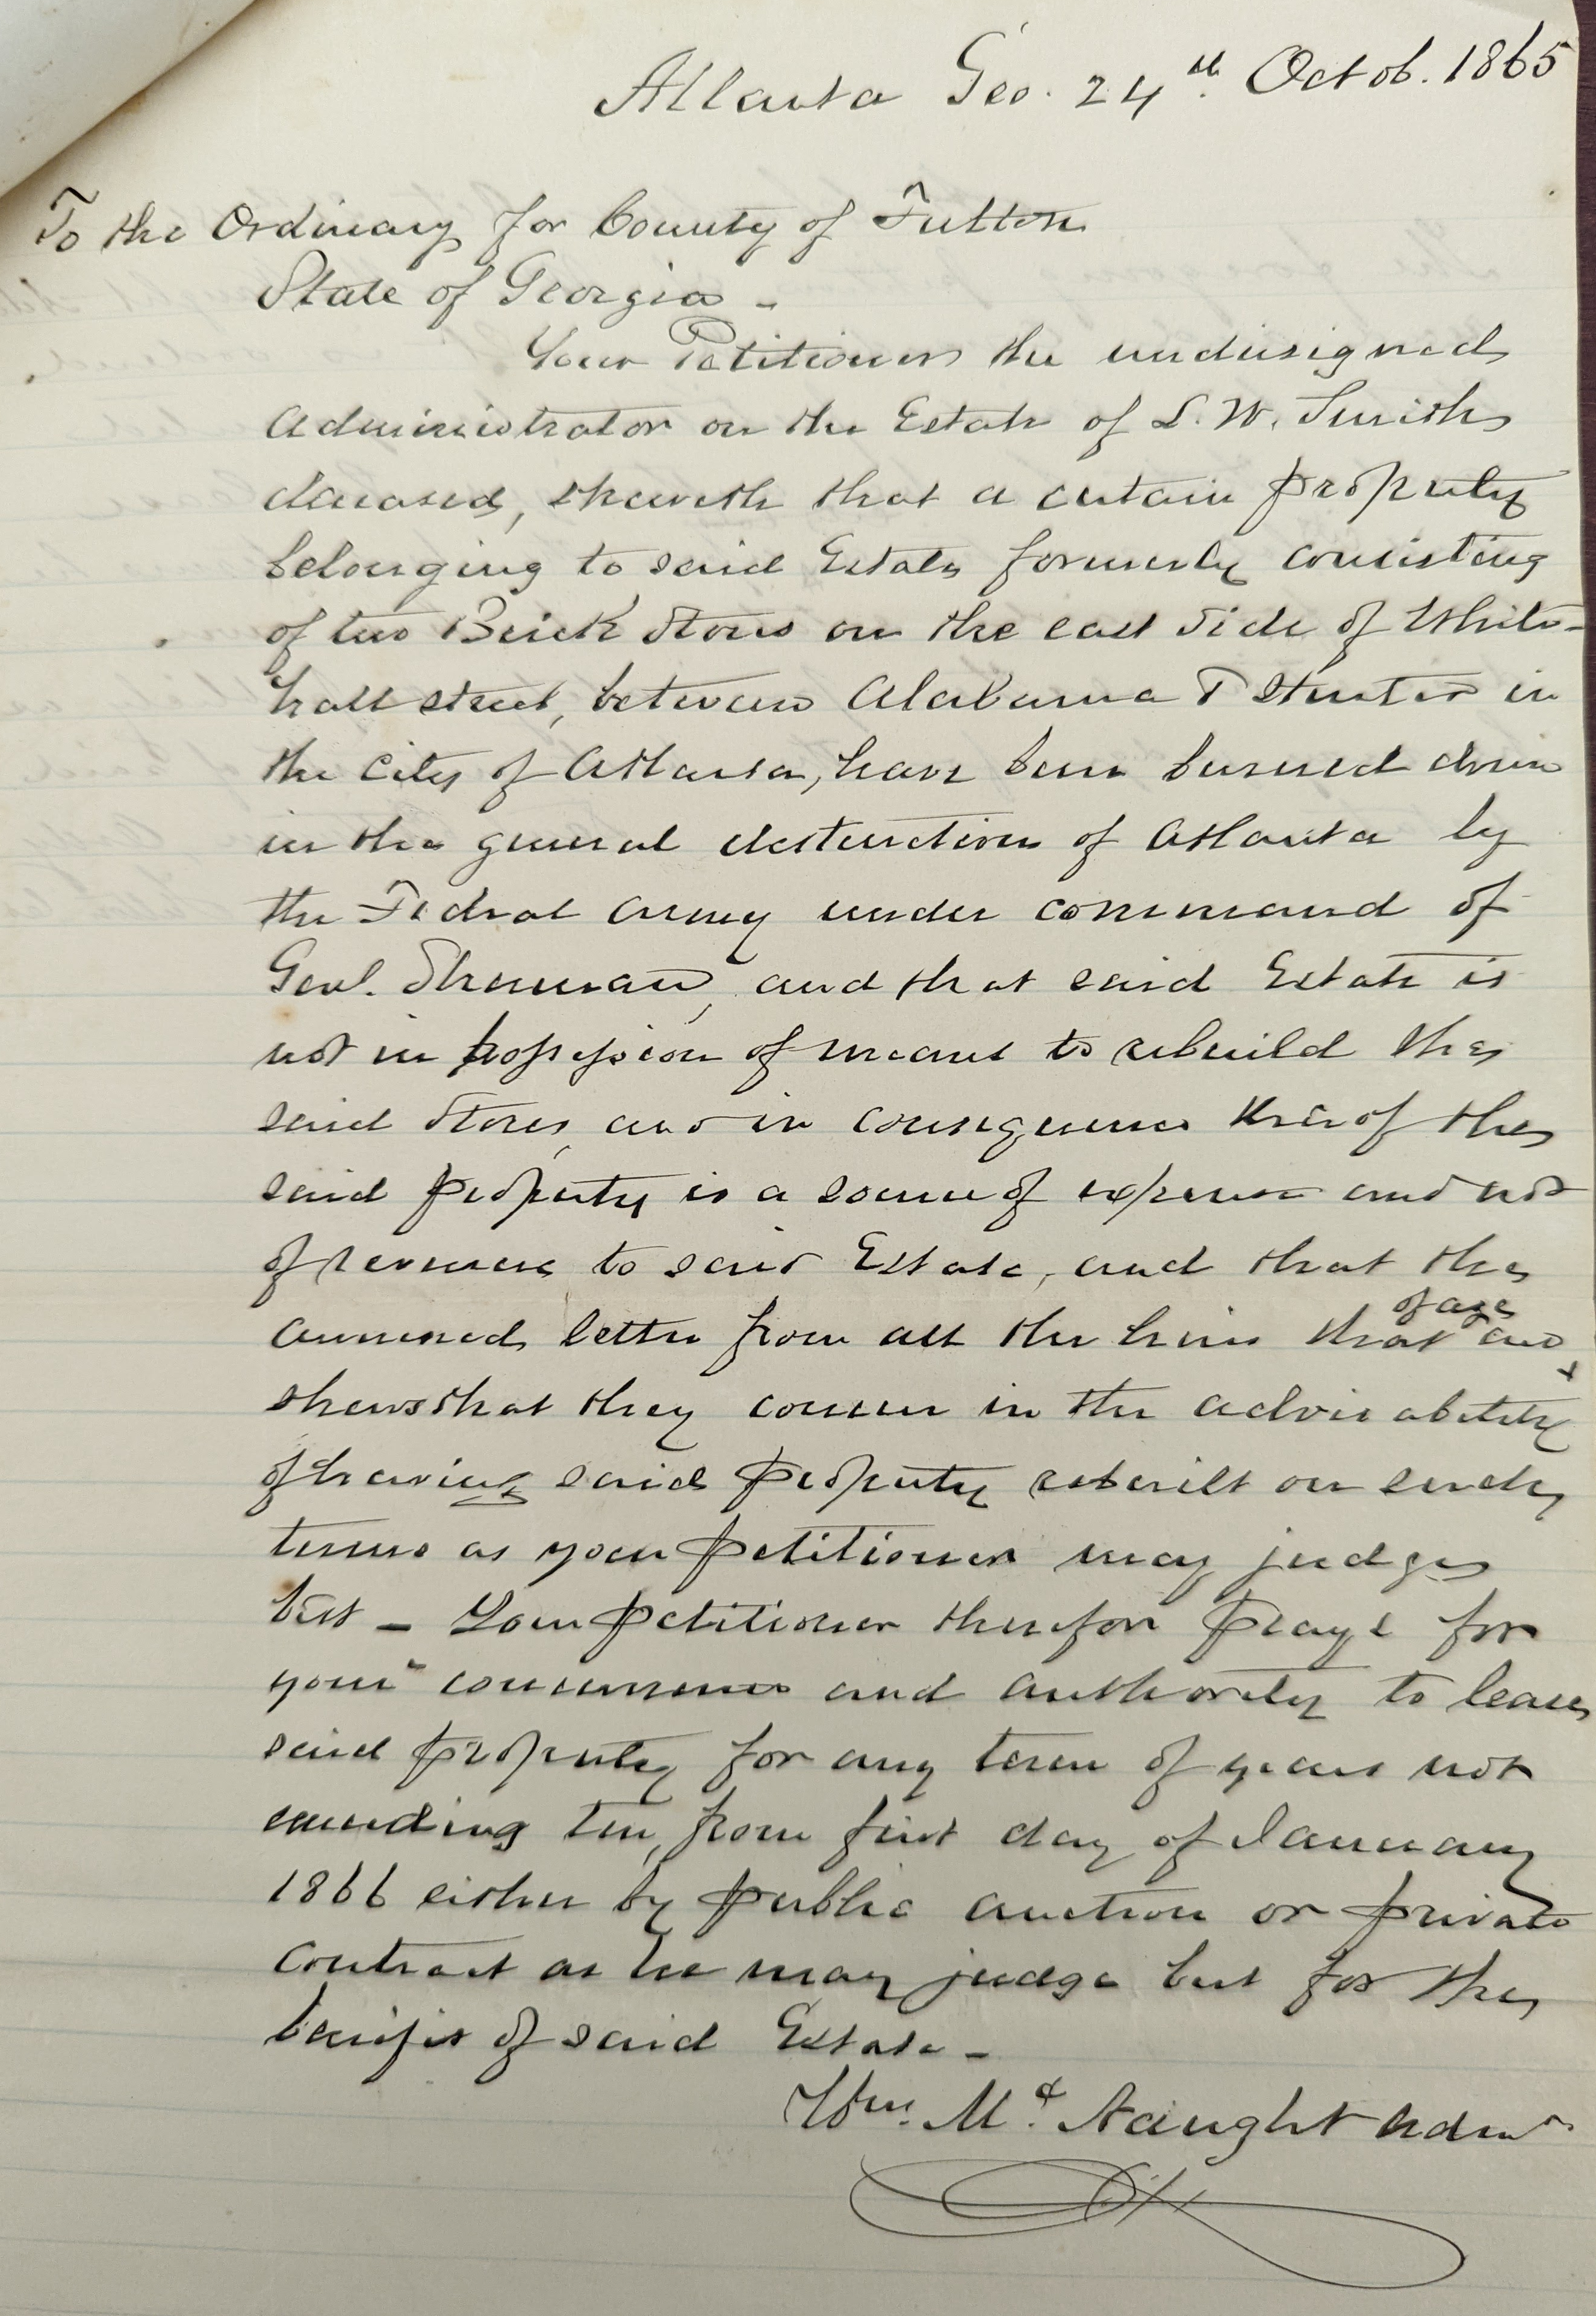 Atlanta Geo. 24th Octob. 1865
To the Ordinary for County of Fulton
State of Georgia -
Your Petitioner the undersigned
Administrator on the Estate of S. W. Smith
deceased, sheweth that a certain property
belonging to said Estate formerly consisting
of two Brick Stores on the east side of White-
hall street, between Alabama & Hunter in
the City of Atlanta, have been burned down
in the general destruction of Atlanta by
the Federal army under command of
Genl. Sherman, and that said Estate is
not in possession of means to rebuild the
said Stores, and in consequence thereof the
said property is a source of expense and not
of revenue to said Estate, and that the
annexed letter from all the heirs that are
of age
shews that they concur in the advisability
of having said property rebuilt on such
terms as your petitioner may judge
best - Your petitioner therefor prays for
your concurrence and authority to lease
said property for any term of years not
exceeding ten, from first day of January
1866 either by public auction or private
contract as he may judge best for the
benifit of said Estate -
Wm. Mc. Naught Admr